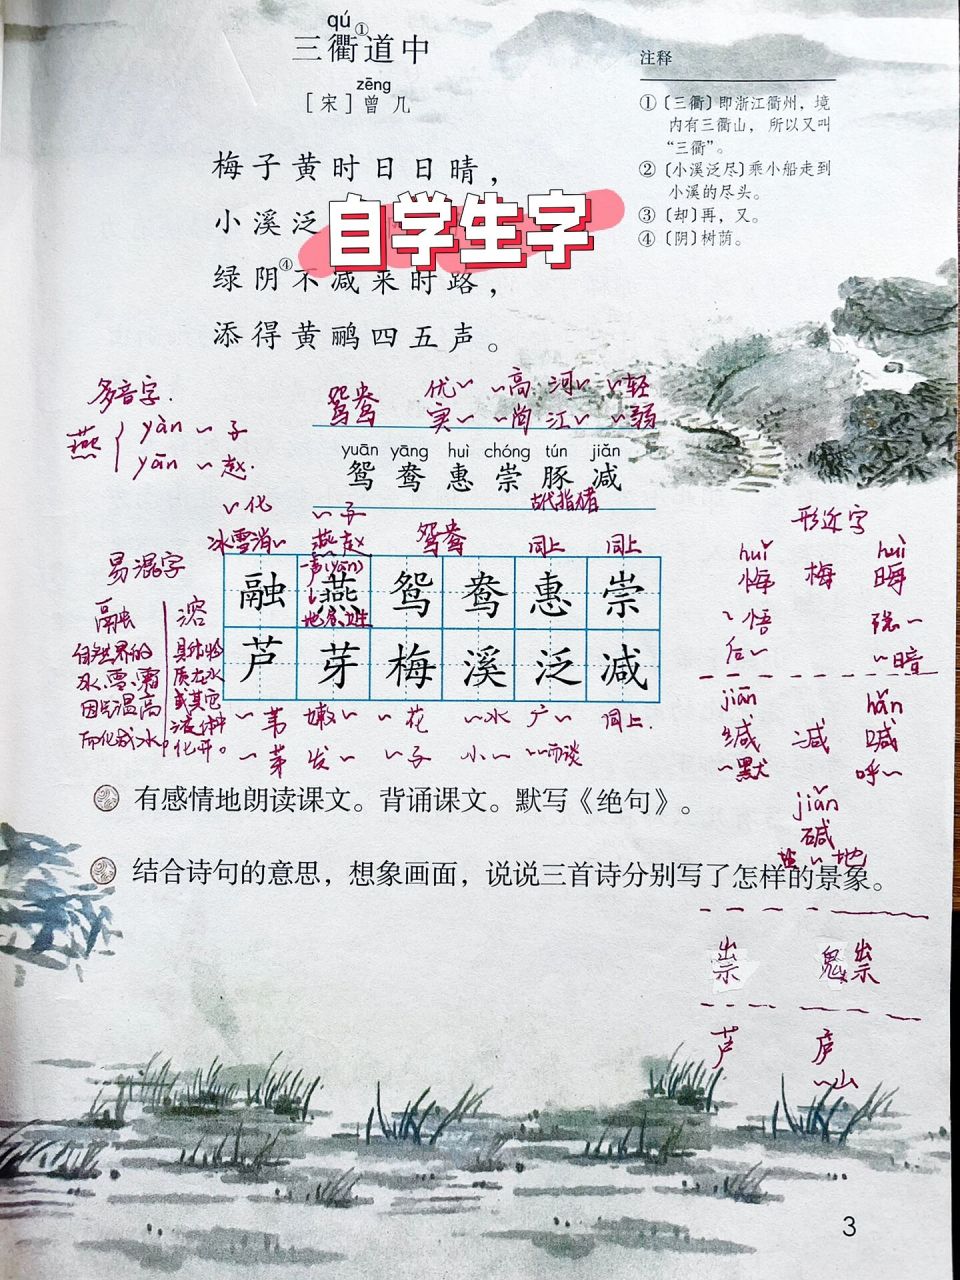 qú
三衢道中①
zēng
［宋］曾几
梅子黄时日日晴，
小溪泛
自学生字
绿阴④不减来时路，
添得黄鹂四五声。
注释
①〔三衢〕即浙江衢州，境
内有三衢山，所以又叫
“三衢”。
②〔小溪泛尽〕乘小船走到
小溪的尽头。
③〔却〕再，又。
④〔阴〕树荫。
多音字.
燕 { yàn ~子
yān ~赵.
鸳鸯 优~ ~高 河~ ~轻
实~ ~尚 江~ ~弱
yuān yāng huì chóng tún jiǎn
鸳 鸯 惠 崇 豚 减
古代指猪
~化 ~子
冰雪消~ 燕赵 鸳鸯 同上 同上
一声(yān)
地名、姓
融 燕 鸳 鸯 惠 崇
芦 芽 梅 溪 泛 减
~苇 嫩~ ~花 ~水 广~ 同上.
~茅 发~ ~子 小~ ~~而谈
易混字
融 溶
自然界的
冰、雪、霜
因气温高
而化成水。
具体物
质在水
或其它
液体中
化开。
形近字
huǐ huì
悔 梅 晦
~悟
后~ ~暗
jiān hǎn
缄 减 喊
~默 呼~
jiǎn
碱
盐~地
有感情地朗读课文。背诵课文。默写《绝句》。
结合诗句的意思，想象画面，说说三首诗分别写了怎样的景象。
祟 鬼祟
芦 庐
~山
3